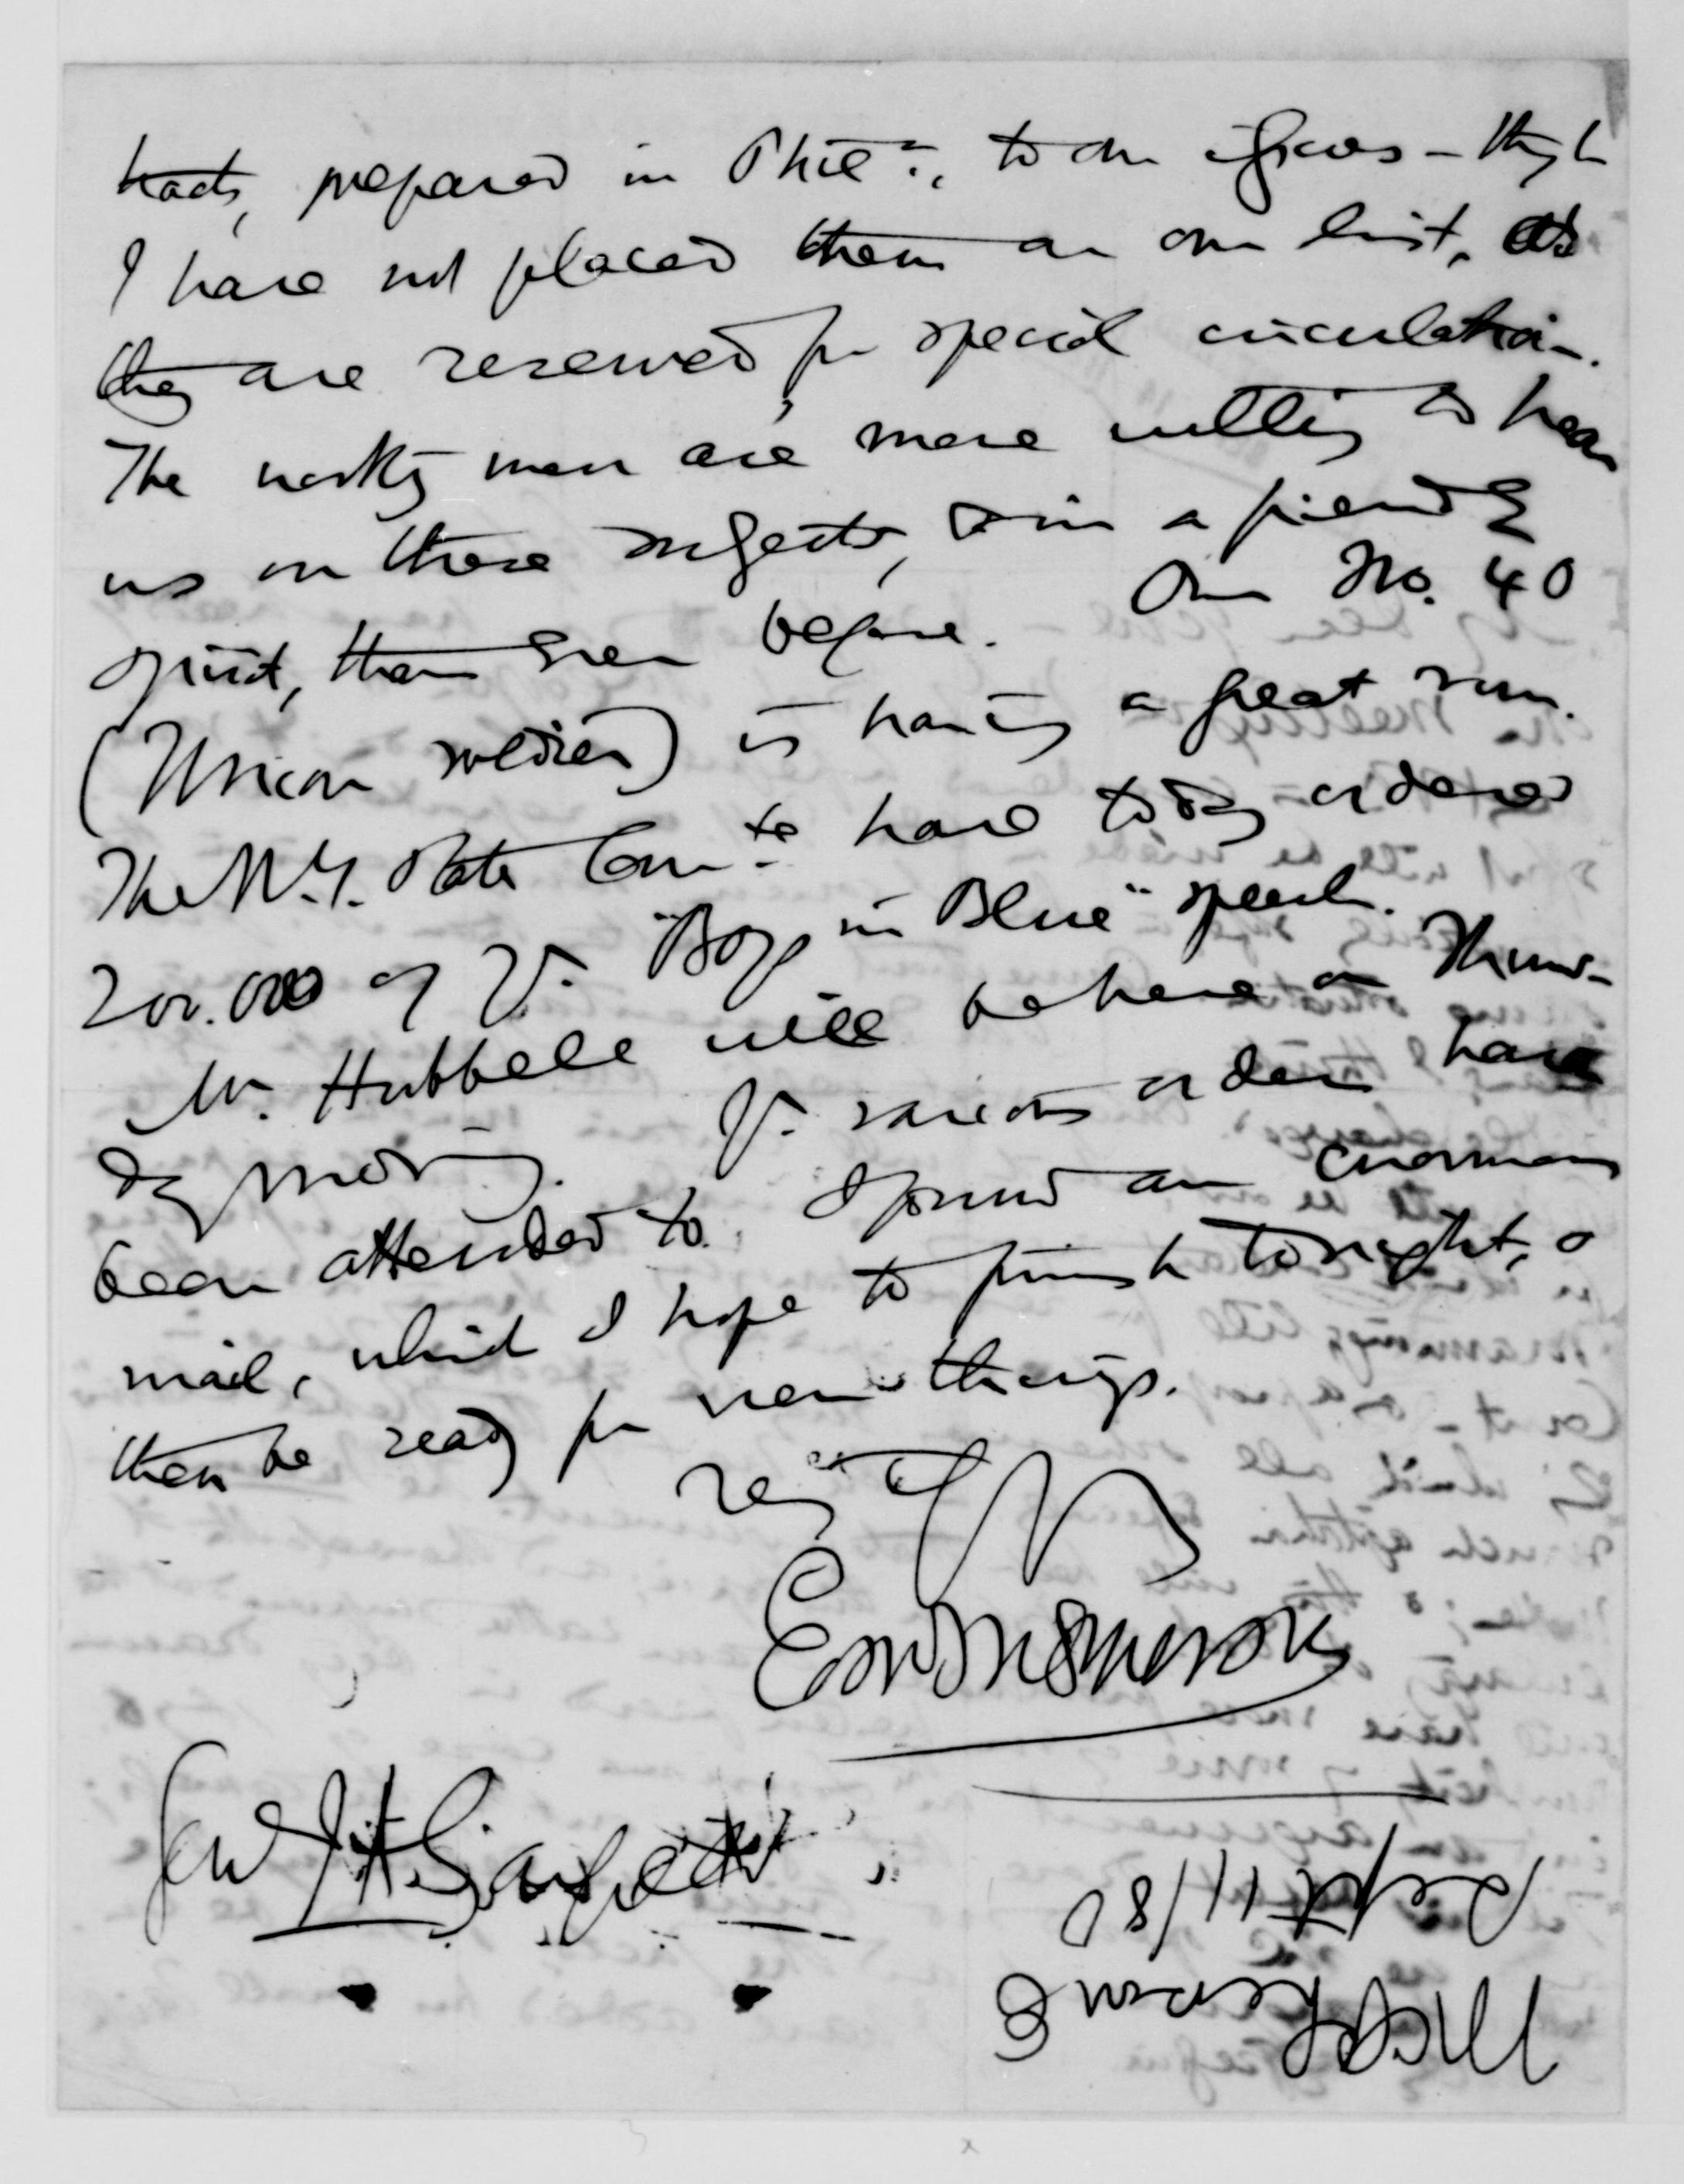 tracts, prepared in Phila., to our issues — though
I have not placed them on our list, as
they are reserved for special circulation.
The working men are more willing to hear
us on these subjects, & in a friendly
spirit, than ever before. Our No. 40
(Union soldier) is having a great run.
The N.Y. State Comte have today ordered
200.000 of yr. "Boys in Blue" speech.
Mr. Hubbell will be here on Thurs-
day morning. Yr. various orders have
been attended to. I found an enormous
mail, which I hope to finish tonight, &
then be ready for new things.
Edwd McPherson
Genl J A Garfield
McPherson E
Sept 11/80